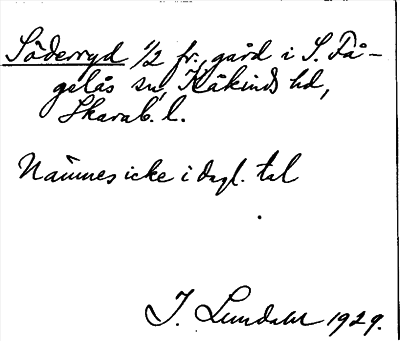 Söderryd 1/2 fr., gård i S. Få-
gelås sn, Kåkinds hd,
Skarab. l.
Nämnes icke i dagl. tal
I. Lundahl 1929.